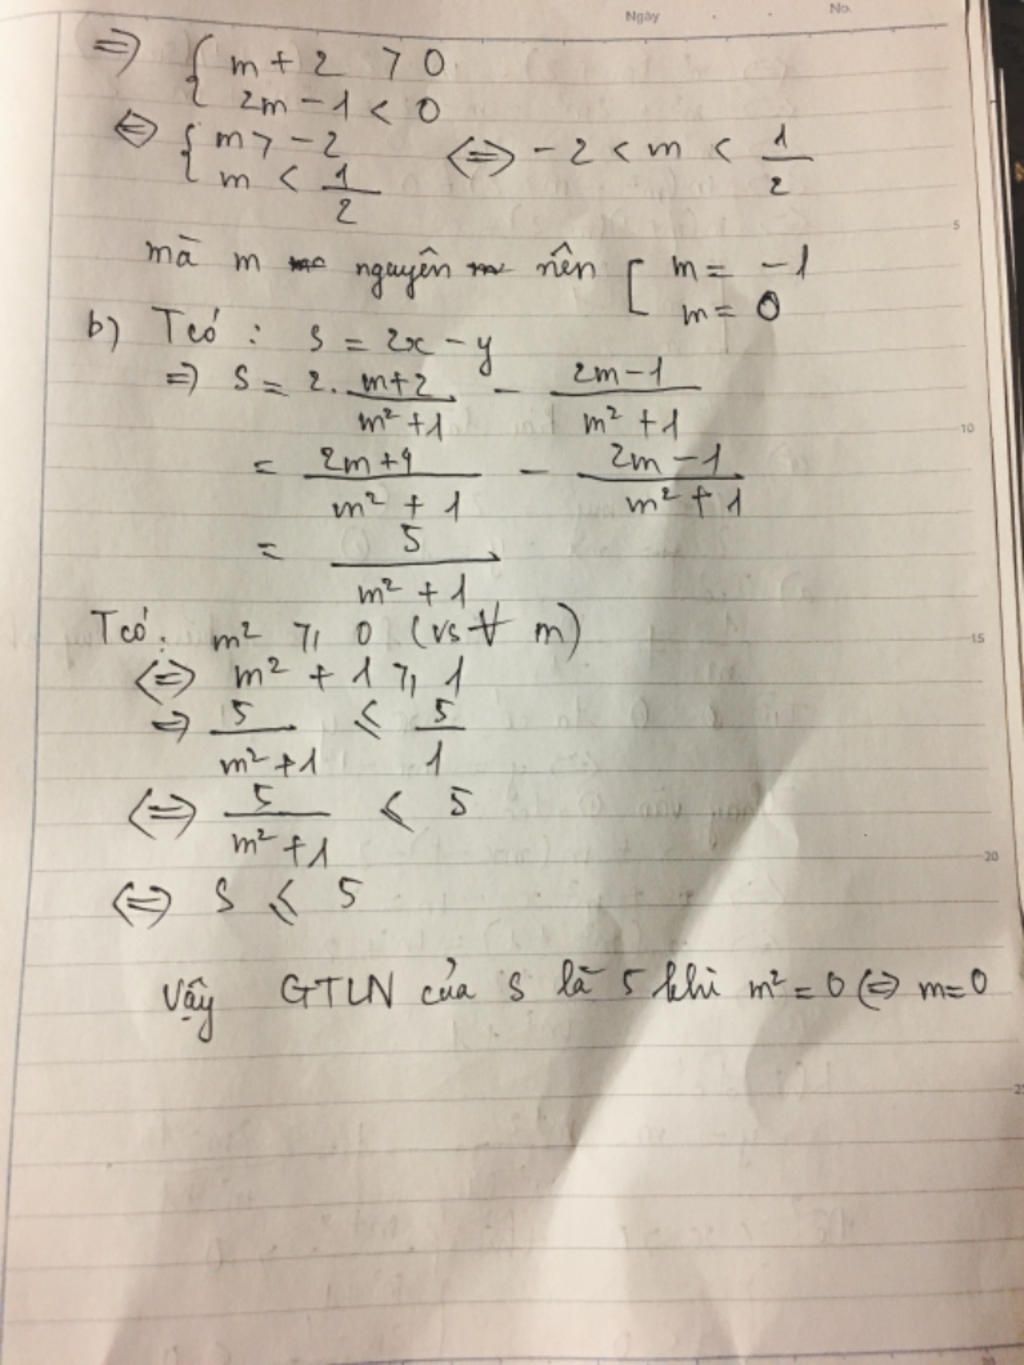 Ngày . . No.
=> { m + 2 > 0
2m - 1 < 0
<=> { m > -2 <=> -2 < m < 1/2
m < 1/2
5
mà m nguyên nên [ m = -1
m = 0
b) Tcó : S = 2x - y
=> S = 2. (m+2)/(m² + 1) - (2m-1)/(m² + 1)
10
= (2m+4)/(m² + 1) - (2m-1)/(m² + 1)
= 5/(m² + 1)
Tcó: m² ⩾ 0 (vs ∀ m)
15
<=> m² + 1 ⩾ 1
=> 5/(m²+1) ⩽ 5/1
<=> 5/(m²+1) ⩽ 5
20
<=> S ⩽ 5
Vậy GTLN của S là 5 khi m² = 0 <=> m=0
25